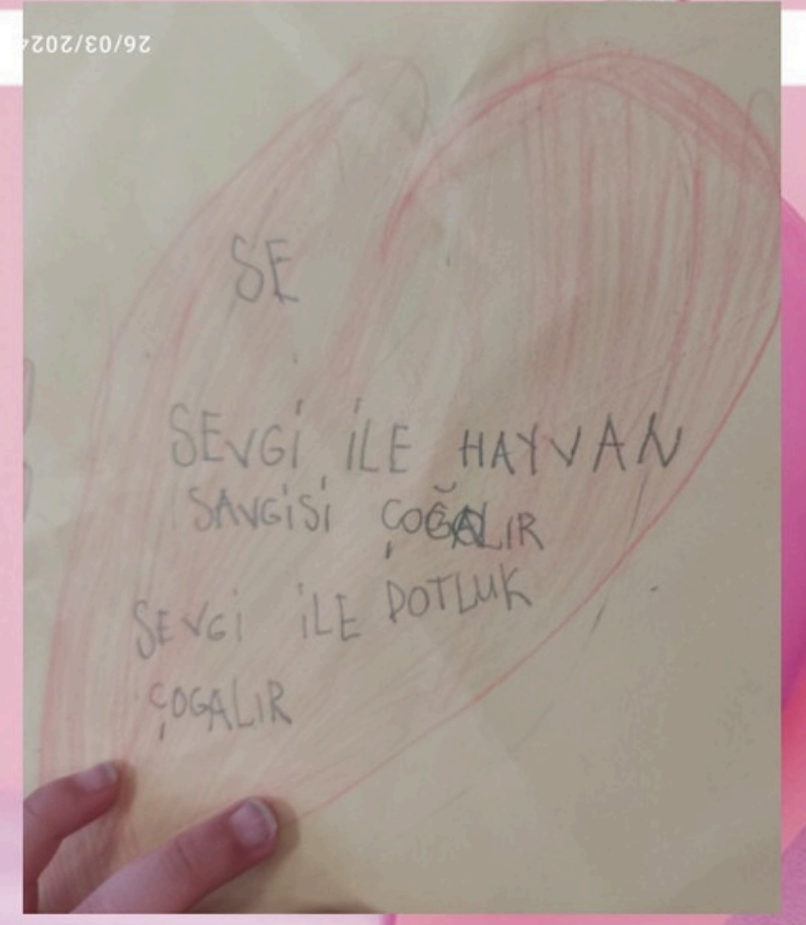 26/03/2024
SE
SEVGİ İLE HAYVAN
SAVGİSİ ÇOĞALIR
SEVGİ İLE DOTLUK
ÇOGALIR